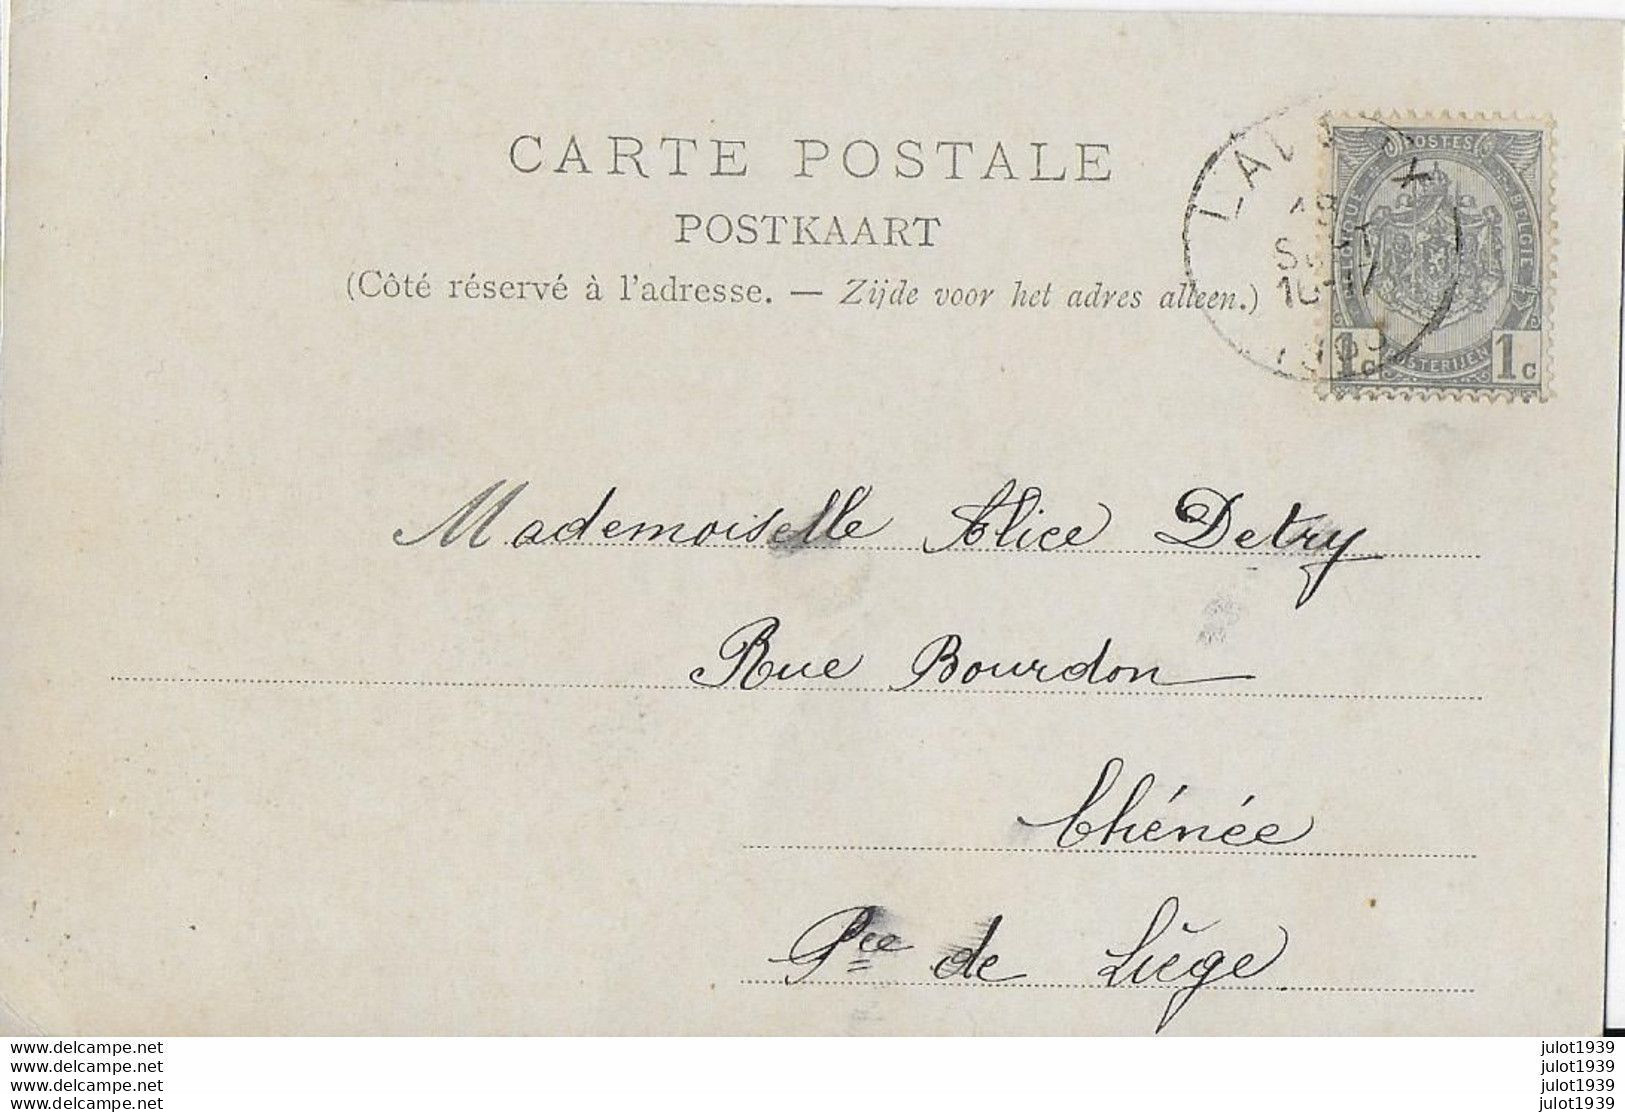 CARTE POSTALE
POSTKAART
(Côté réservé à l'adresse. — Zijde voor het adres alleen.)
POSTES
BELGIQUE
BELGIE
POSTERIJEN
1c
1c
Mademoiselle Alice Detry
Rue Bourdon
Chénée
Pce de Liège
www.delcampe.net
www.delcampe.net
www.delcampe.net
www.delcampe.net
julot1939
julot1939
julot1939
julot1939